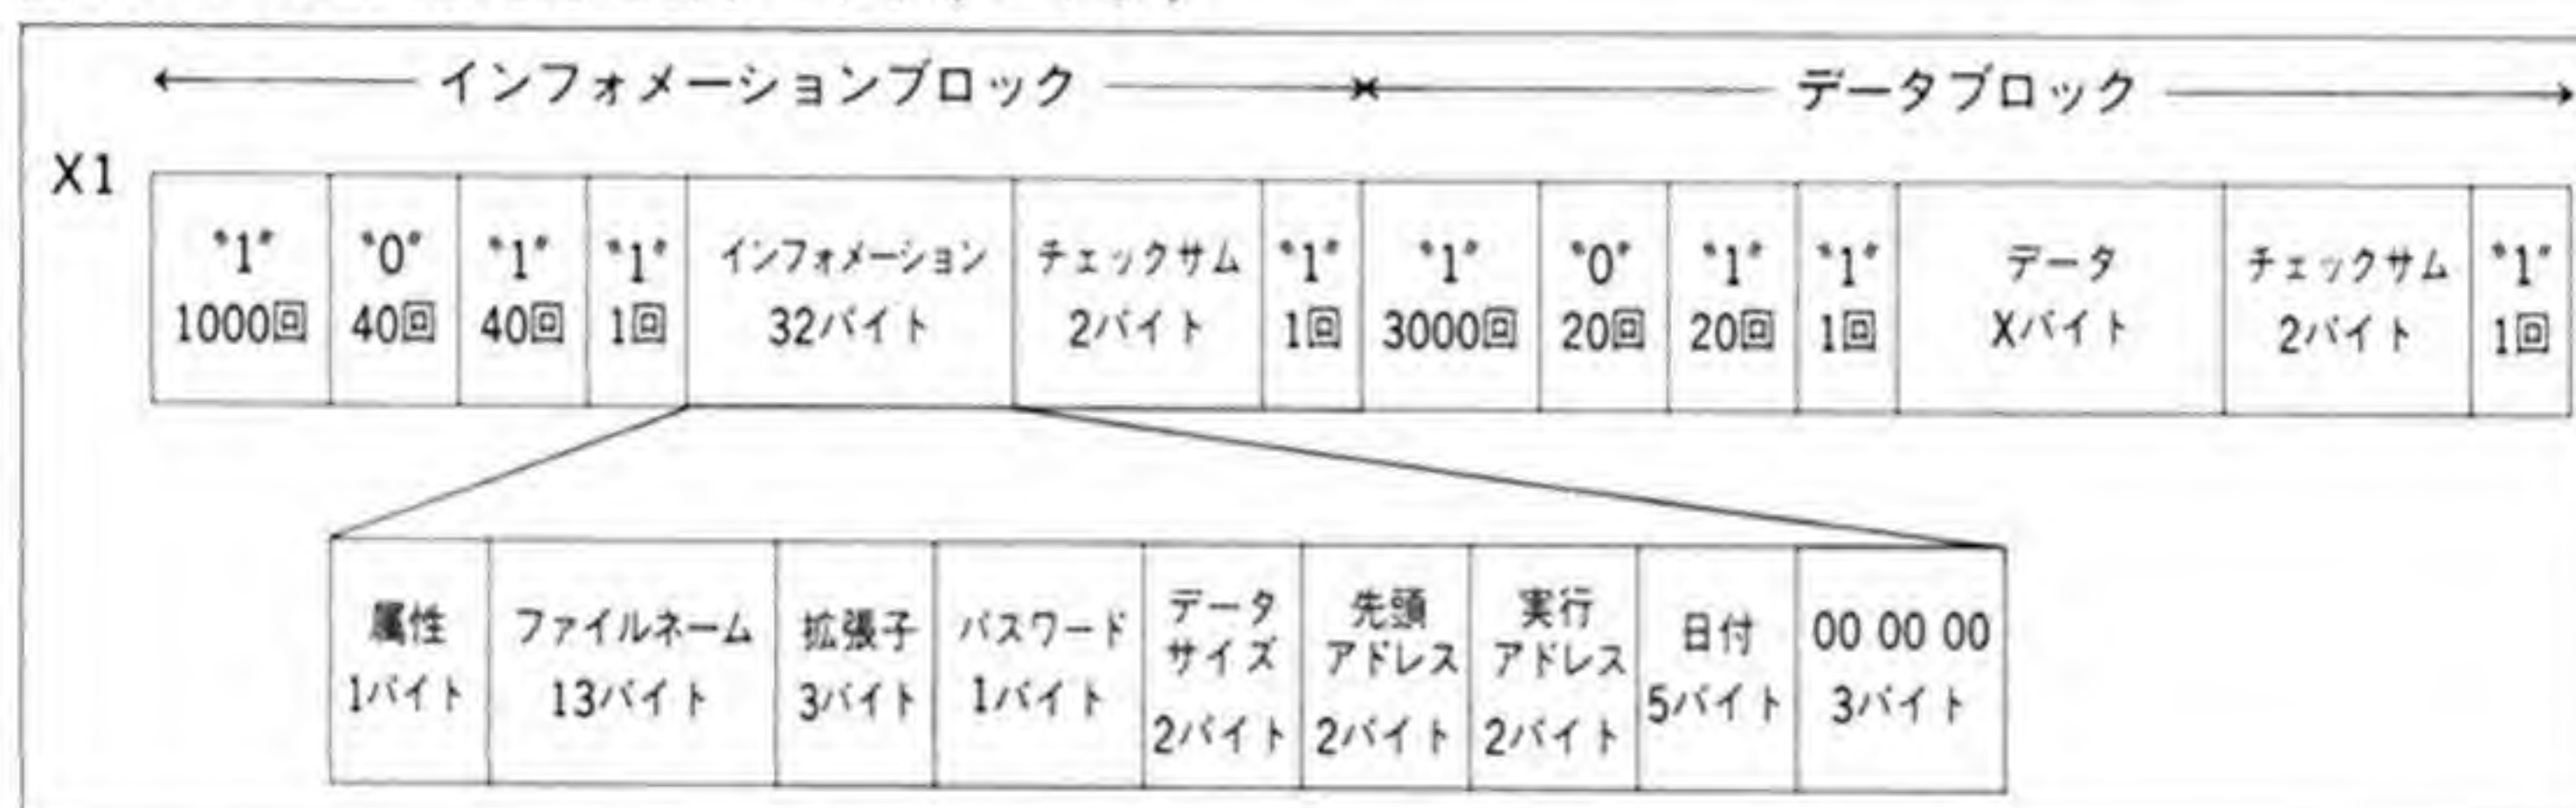 インフォメーションブロック
データブロック
X1
"1"
1000回
"0"
40回
"1"
40回
"1"
1回
インフォメーション
32バイト
チェックサム
2バイト
"1"
1回
"1"
3000回
"0"
20回
"1"
20回
"1"
1回
データ
Xバイト
チェックサム
2バイト
"1"
1回
属性
1バイト
ファイルネーム
13バイト
拡張子
3バイト
パスワード
1バイト
データ
サイズ
2バイト
先頭
アドレス
2バイト
実行
アドレス
2バイト
日付
5バイト
00 00 00
3バイト